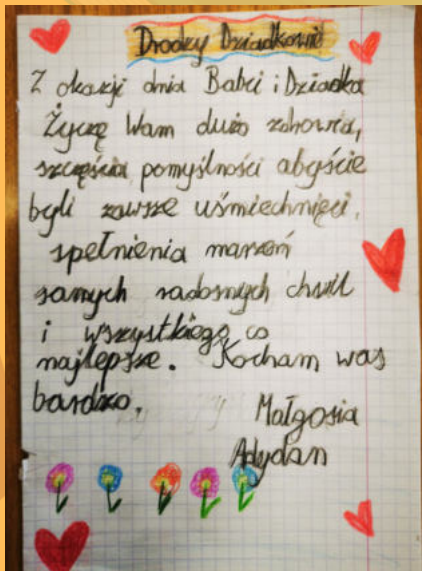 Drodzy Dziadkowie
Z okazji dnia Babci i Dziadka
Życzę Wam dużo zdrowia,
szczęścia pomyślności abyście
byli zawsze uśmiechnięci,
spełnienia marzeń
samych radosnych chwil
i wszystkiego co
najlepsze. Kocham was
bardzo,
Małgosia